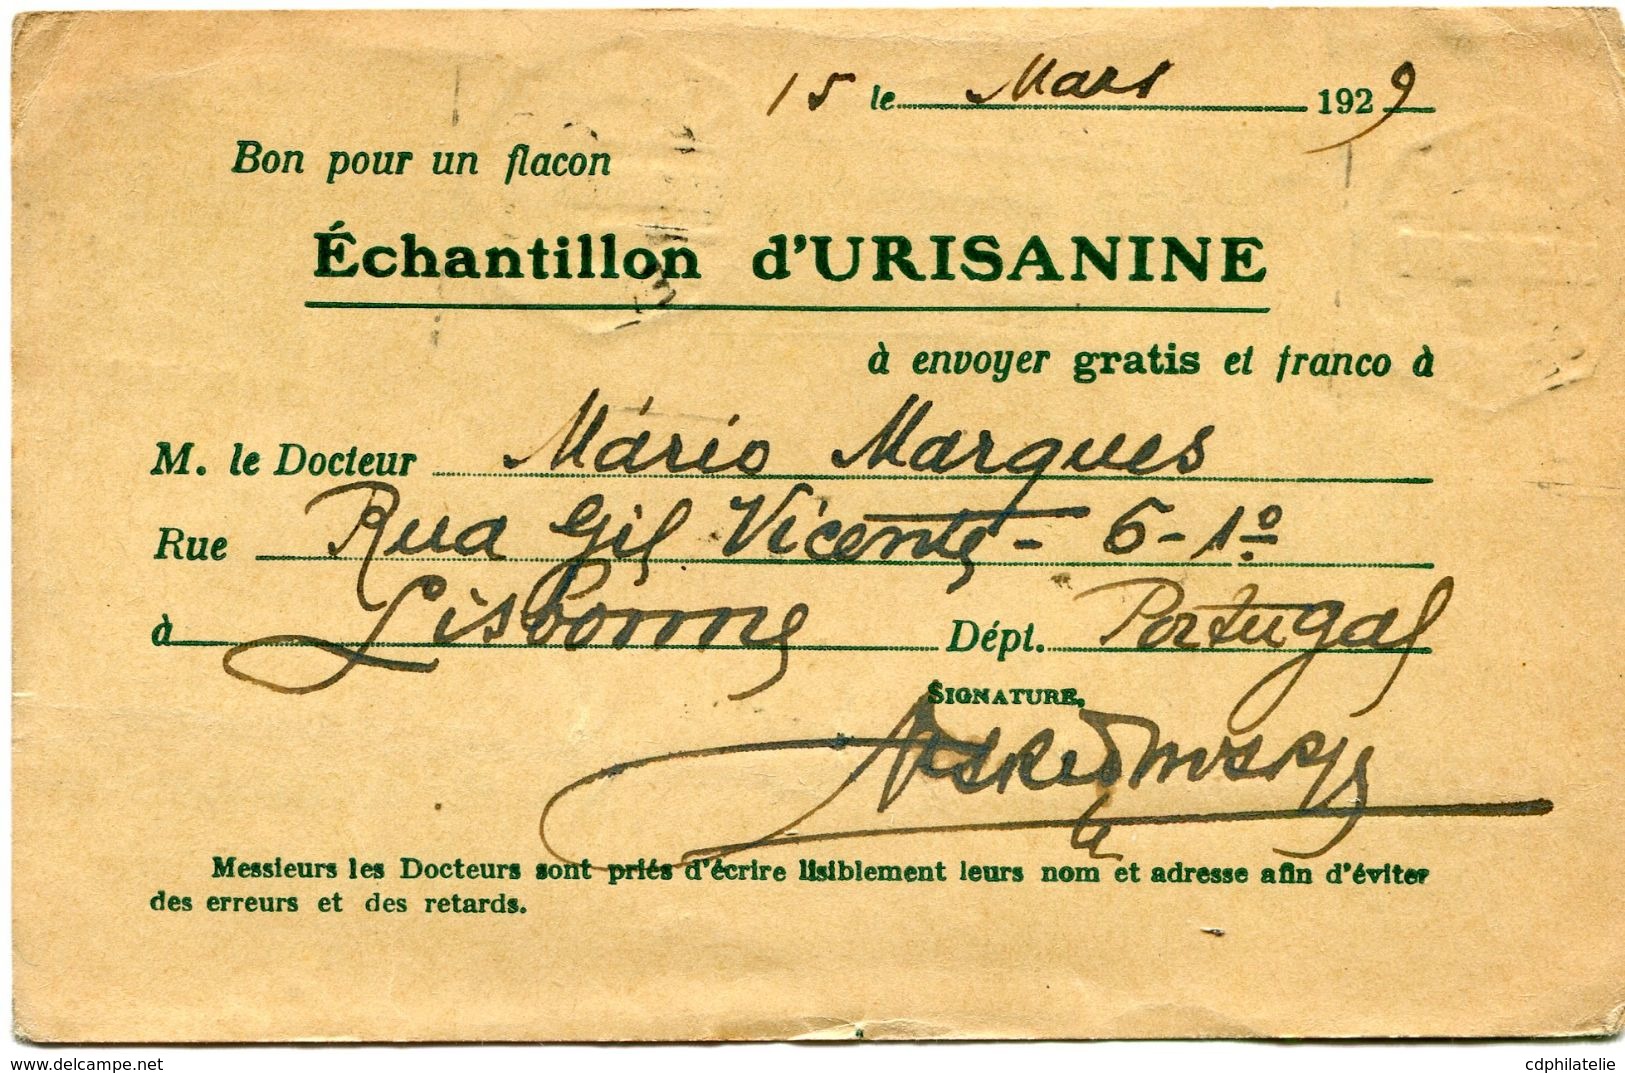 15 le Mars 1929
Bon pour un flacon
Échantillon d'URISANINE
à envoyer gratis et franco à
M. le Docteur Mário Marques
Rue Rua Gil Vicente - 6-1º
à Lisbonne Dépt. Portugal
SIGNATURE,
Messieurs les Docteurs sont priés d'écrire lisiblement leurs nom et adresse afin d'éviter
des erreurs et des retards.
delcampe.net
cdphilatelie